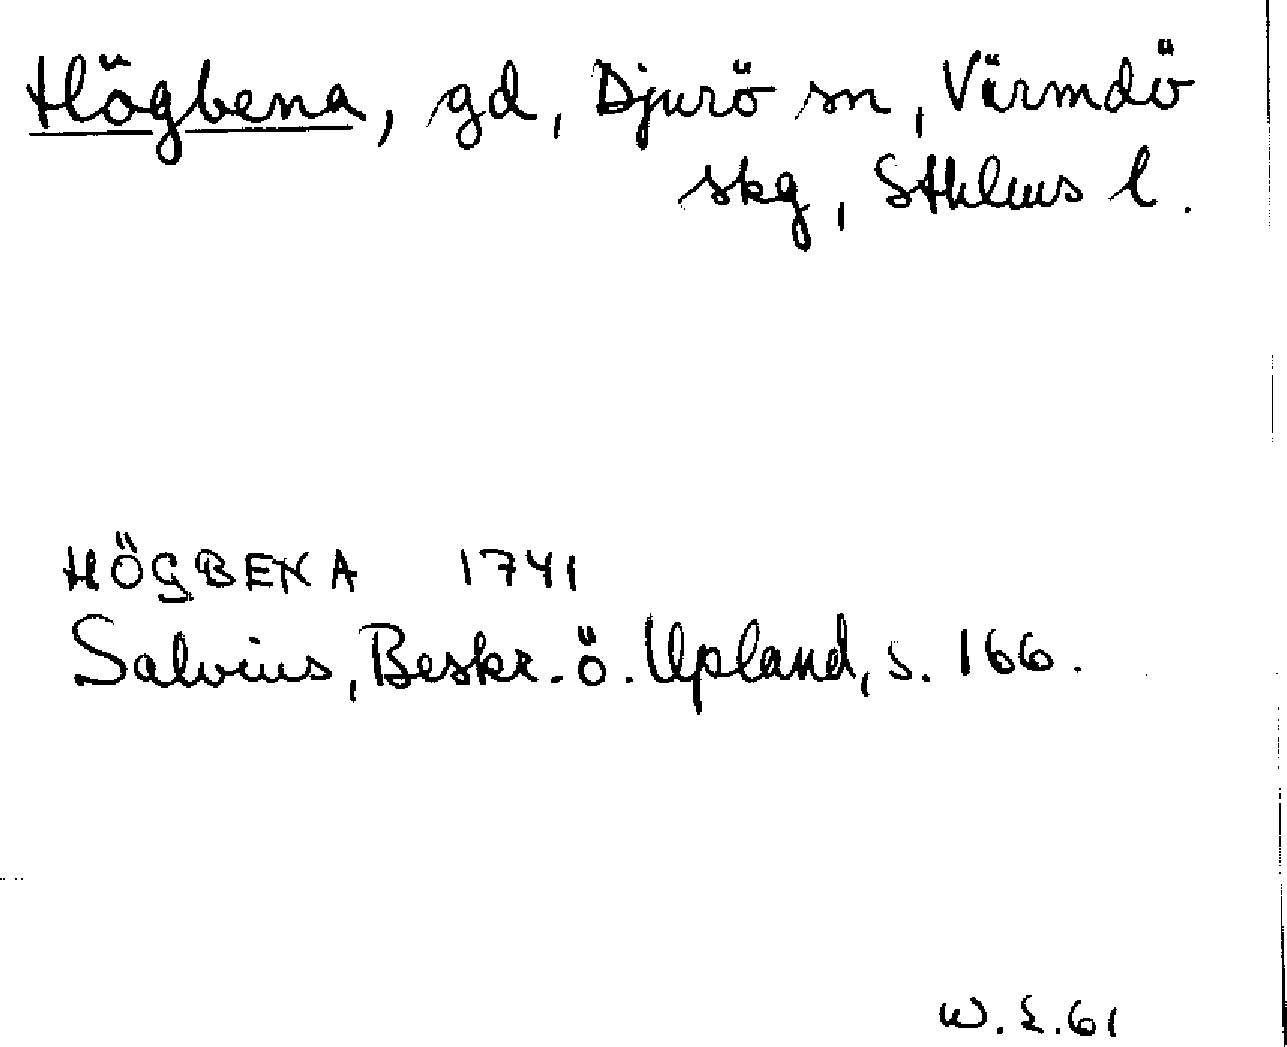 Högbena, gd, Djurö sn, Värmdö
skg, Sthlms l.
HÖGBENA 1741
Salvius, Beskr. ö. Upland, s. 166.
W. L. 61